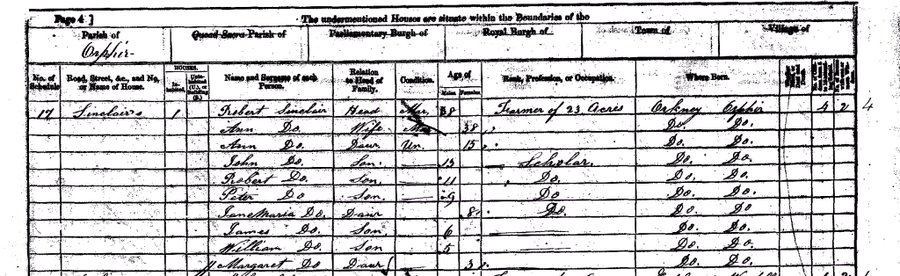 Page 4] The undermentioned Houses are situate within the Boundaries of the
Parish of Quoad Sacra Parish of Parliamentary Burgh of Royal Burgh of Town of Village of
Orphir
HOUSES.
No. of Schedule Road, Street, &c., and No. or Name of House. Name and Surname of each Person. Relation to Head of Family. Condition. Age of Males Females Rank, Profession, or Occupation. Where Born.
17 Sinclair's 1 Robert Sinclair Head Mar 38 Farmer of 23 Acres Orkney Orphir 4 2 4
Ann Do. Wife Mar 38 Do. Do.
Ann Do. Daur Un. 15 Do. Do.
John Do. Son 13 Scholar Do. Do.
Robert Do. Son 11 Do. Do. Do.
Peter Do Son 9 Do Do. Do.
Jane Maria Do. Daur 8 Do. Do. Do.
James Do. Son 6 Do. Do.
William Do. Son 5 Do. Do.
Margaret Do Daur 3 Do. Do.